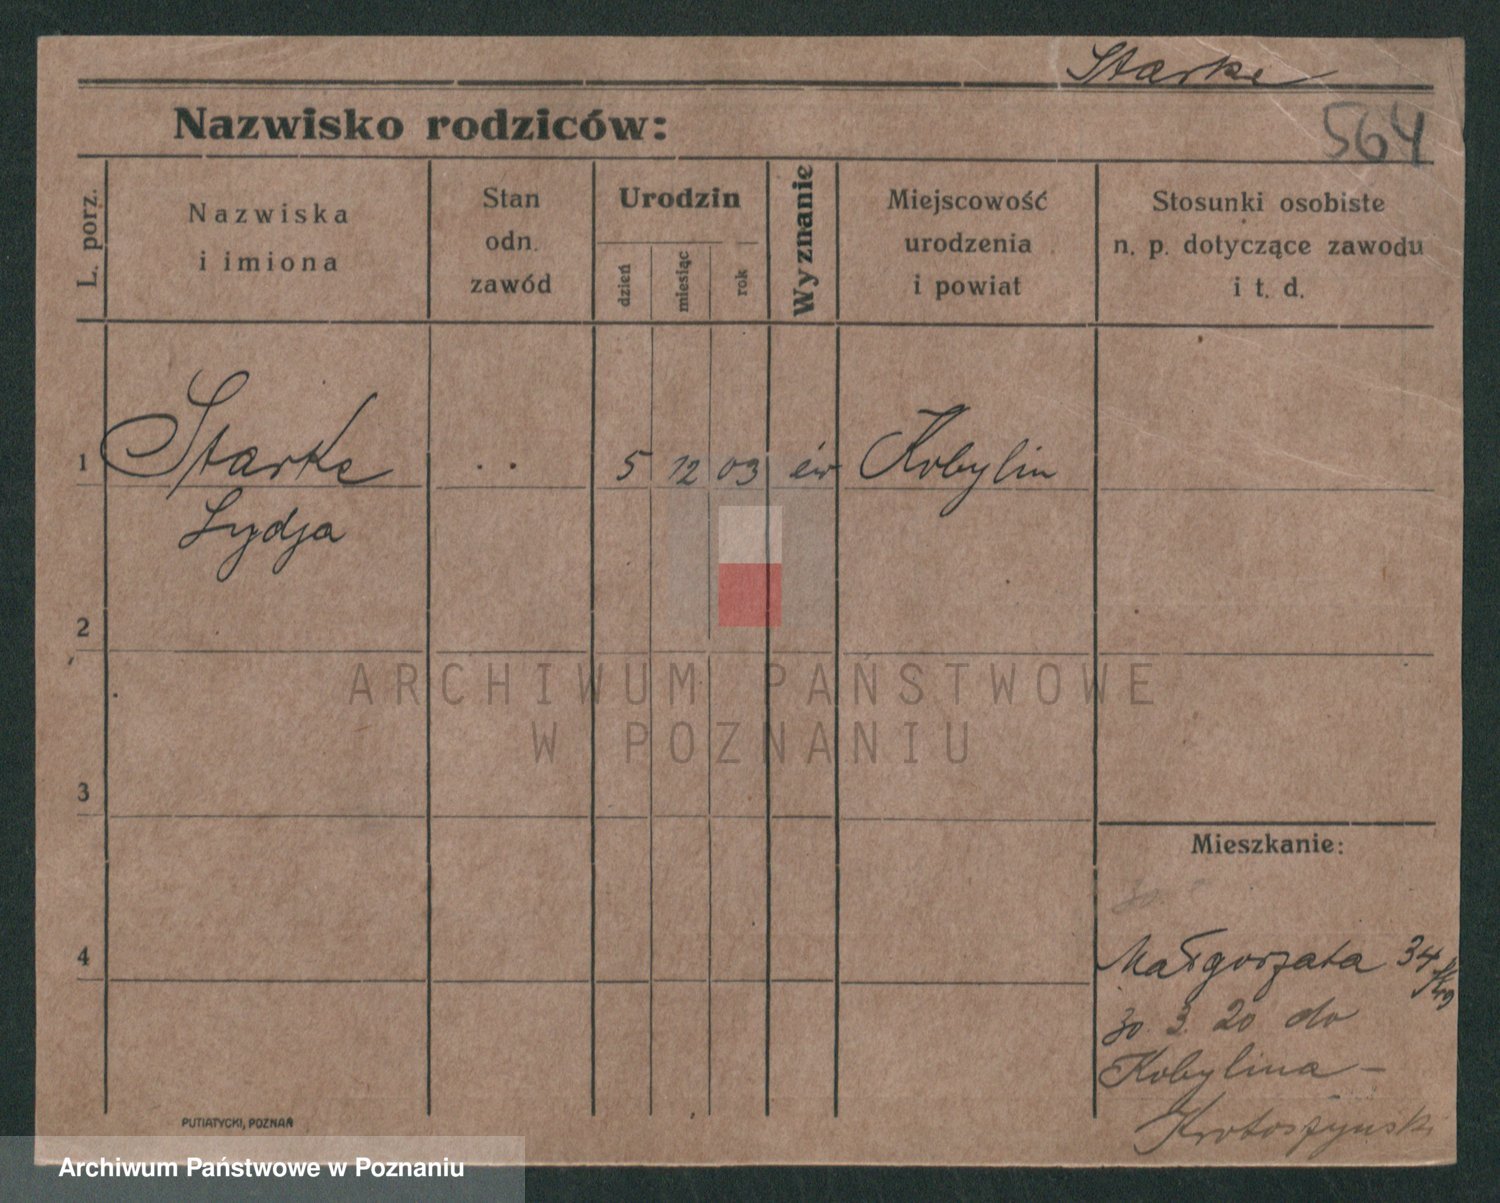 Starke
Nazwisko rodziców:
564
L. porz.
Nazwiska
i imiona
Stan
odn.
zawód
Urodzin
dzień
miesiąc
rok
Wyznanie
Miejscowość
urodzenia
i powiat
Stosunki osobiste
n. p. dotyczące zawodu
i t. d.
1 Starke .. 5 12 03 ew Kobylin
Lydja
2
ARCHIWUM PAŃSTWOWE
W POZNANIU
3
Mieszkanie:
4
Małgorzata 34
30 3. 20 do
Kobylina –
Krotoszyński
PUTIATYCKI, POZNAŃ
Archiwum Państwowe w Poznaniu